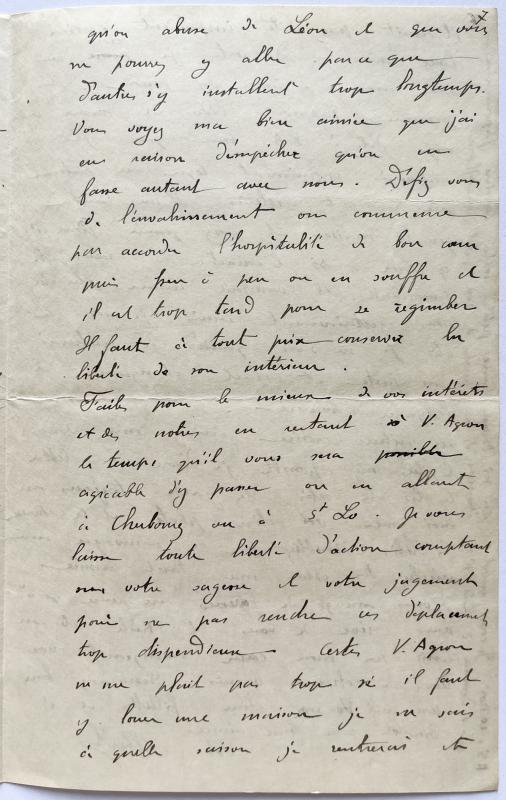 7
qu'on abuse de Léon et que vous
ne pourrez y aller parce que
d'autres s'y installent trop longtemps.
Vous voyez ma bien aimée que j'ai
eu raison d'empêcher qu'on en
fasse autant avec nous. Défiez vous
de l'envahissement on commence
par accorder l'hospitalité de bon cœur
puis peu à peu on en souffre et
il est trop tard pour se regimber
Il faut à tout prix conserver la
liberté de son intérieur.
Faites pour le mieux de vos intérêts
et des notres en restant à V. Agron
le temps qu'il vous sera possible
agréable d'y passer ou en allant
à Cherbourg ou à St Lo. Je vous
laisse toute liberté d'action comptant
sur votre sagesse et votre jugement
pour ne pas rendre ces déplacements
trop dispendieux. Certes V. Agron
ne me plait pas trop s'il faut
y louer une maison je ne sais
à quelle saison je rentrerais et